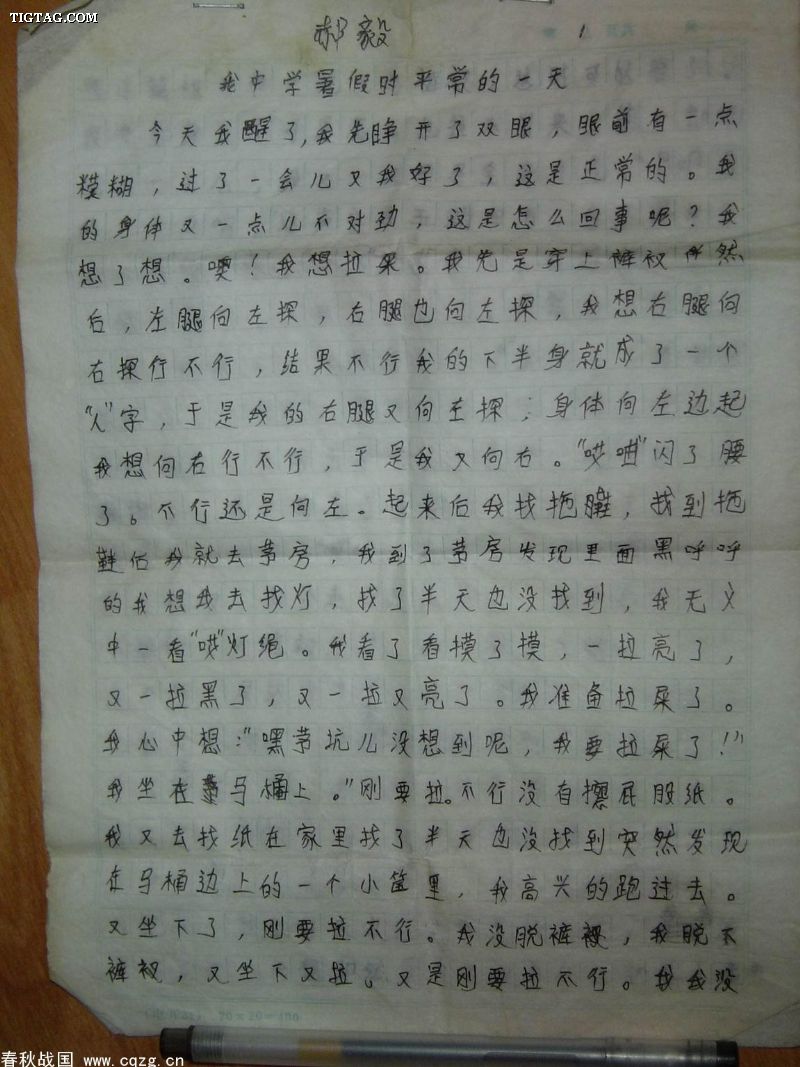 TIGTAG.COM
郝毅 1
我中学暑假时平常的一天
今天我醒了,我先睁开了双眼,眼前有一点
模糊,过了一会儿又我好了,这是正常的。我
的身体又一点儿不对劲,这是怎么回事呢?我
想了想。噢!我想拉屎。我先是穿上裤衩然
后,左腿向左探,右腿也向左探,我想右腿向
右探行不行,结果不行我的下半身就成了一个
“人”字,于是我的右腿又向左探;身体向左边起
我想向右行不行,于是我又向右。“哎呦”闪了腰
了。不行还是向左。起来后我找拖鞋,找到拖
鞋后我就去茅房,我到了茅房发现里面黑呼呼
的我想我去找灯,找了半天也没找到,我无义
中一看“哎”灯绳。我看了看摸了摸,一拉亮了,
又一拉黑了,又一拉又亮了。我准备拉屎了。
我心中想:“嘿茅坑儿没想到呢,我要拉屎了!”
我坐在马桶上。”刚要拉。不行没有擦屁股纸。
我又去找纸在家里找了半天也没找到突然发现
在马桶边上的一个小筐里,我高兴的跑过去。
又坐下了,刚要拉不行。我没脱裤衩,我脱下
裤衩,又坐下又拉。又是刚要拉不行。我我没
20×20=400
春秋战国 www.cqzg.cn